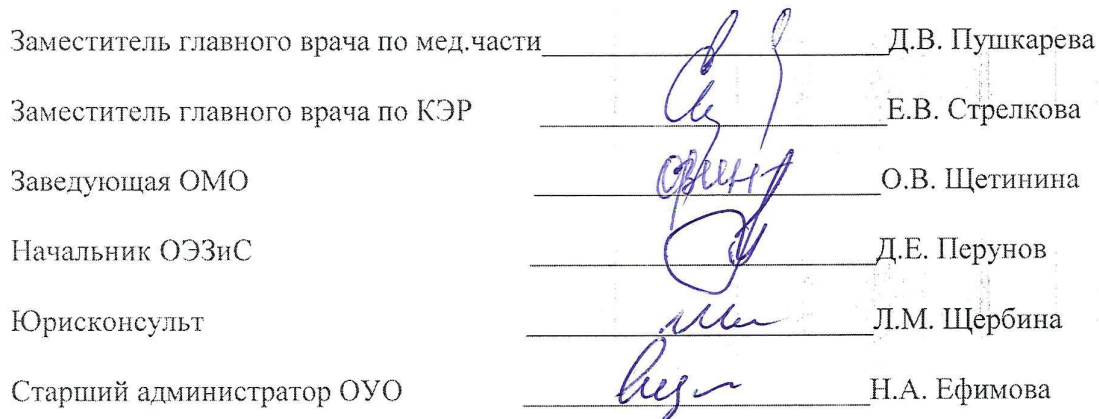 Заместитель главного врача по мед.части Д.В. Пушкарева
Заместитель главного врача по КЭР Е.В. Стрелкова
Заведующая ОМО О.В. Щетинина
Начальник ОЭЗиС Д.Е. Перунов
Юрисконсульт Л.М. Щербина
Старший администратор ОУО Н.А. Ефимова